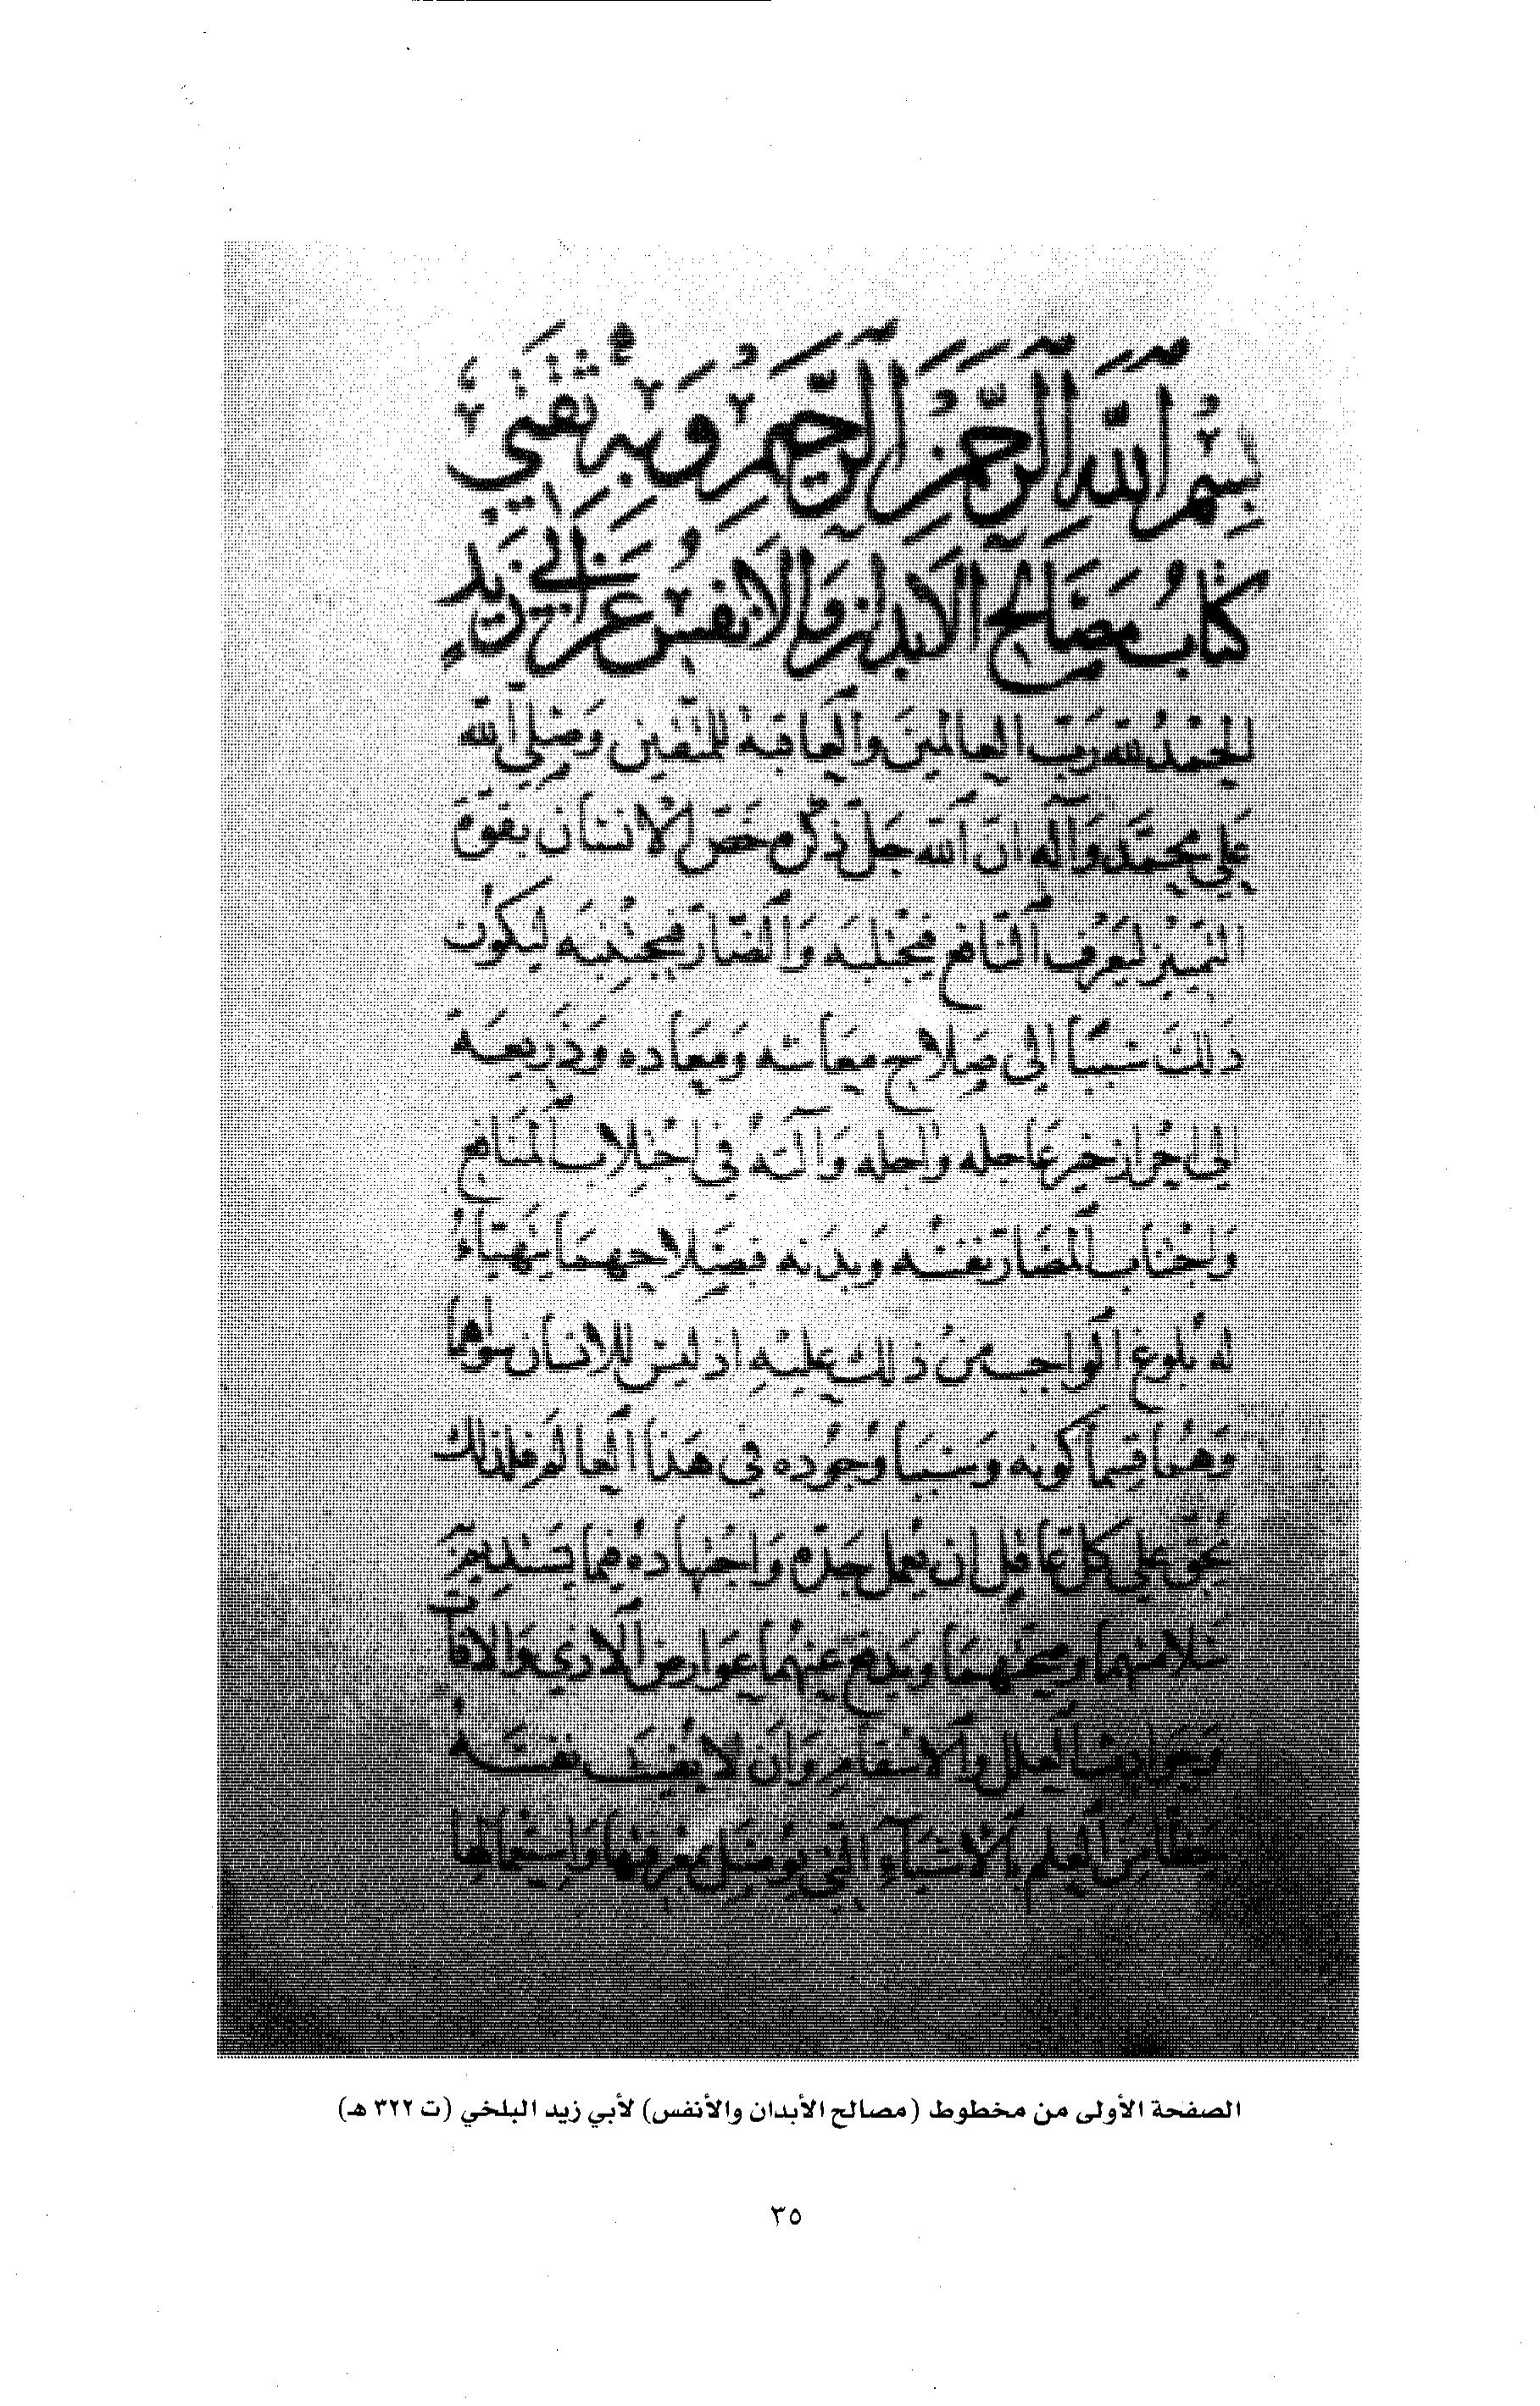 بِسْمِ اللهِ الرَّحْمٰنِ الرَّحِيمِ وَبِهِ ثِقَتِي
كتابُ مصَالِح الأبدان والأنفسُ عَن أَبي زَيدٍ
الحمدُ لله رَبّ العالمينَ وَالعَاقبَة للمتّقين وَصَلى اللّه
عَلى محمّد وَآله ان اللّه جَلّ ذكره خصّ الانسَان بقوّة
التمييز ليَعْرفَ النّافع فيجْتلبَه وَالضّارّ فيجتنبَه ليكوُن
ذَلكَ سَببًا الى صَلاح معَاشه ومعَاده وَذَريعَة
الى احْراز خير عَاجله واجله وَآلته في اجْتلاب المنَافع
وَاجْتناب المضَارّ نفسُه وَبدَنه فبصَلاحهمَا يتهيّاءُ
له بُلوغ الوَاجب منْ ذلك عليْهِ اذ ليسَ للانسَان سواهما
وَهمُا قسمَا كونه وَسَببَا وُجوُده في هَذا العَالم فلذلك
يحقّ على كلّ عَاقِل ان يعمل جَدّه وَاجتهَاده فيمَا يَسْتديم به
سَلامتهمَا وصحّتهمَا ويَدفع عنهُما عوَارض الاذى والافات
وَحوادث العلل والاسْقام وَان لا
حظّا منَ العلم بالاشيَآء التي بمعرفتهَا وَاستعمَالها
الصفحة الأولى من مخطوط (مصالح الأبدان والأنفس) لأبي زيد البلخي (ت ٣٢٢ هـ)
٣٥